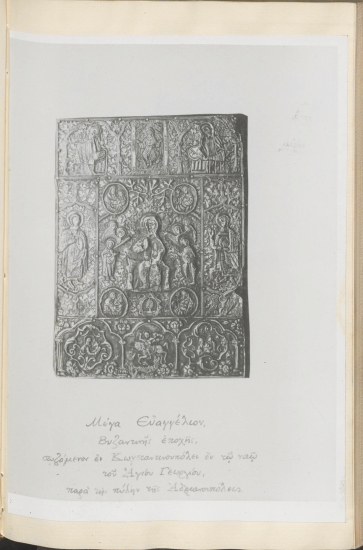 Μέγα Εὐαγγέλιον,
Βυζαντινῆς ἐποχῆς,
σωζόμενον ἐν Κωνσταντινουπόλει ἐν τῷ ναῷ
τοῦ Ἁγίου Γεωργίου,
παρὰ τὴν πύλην τῆς Ἀδριανουπόλεως